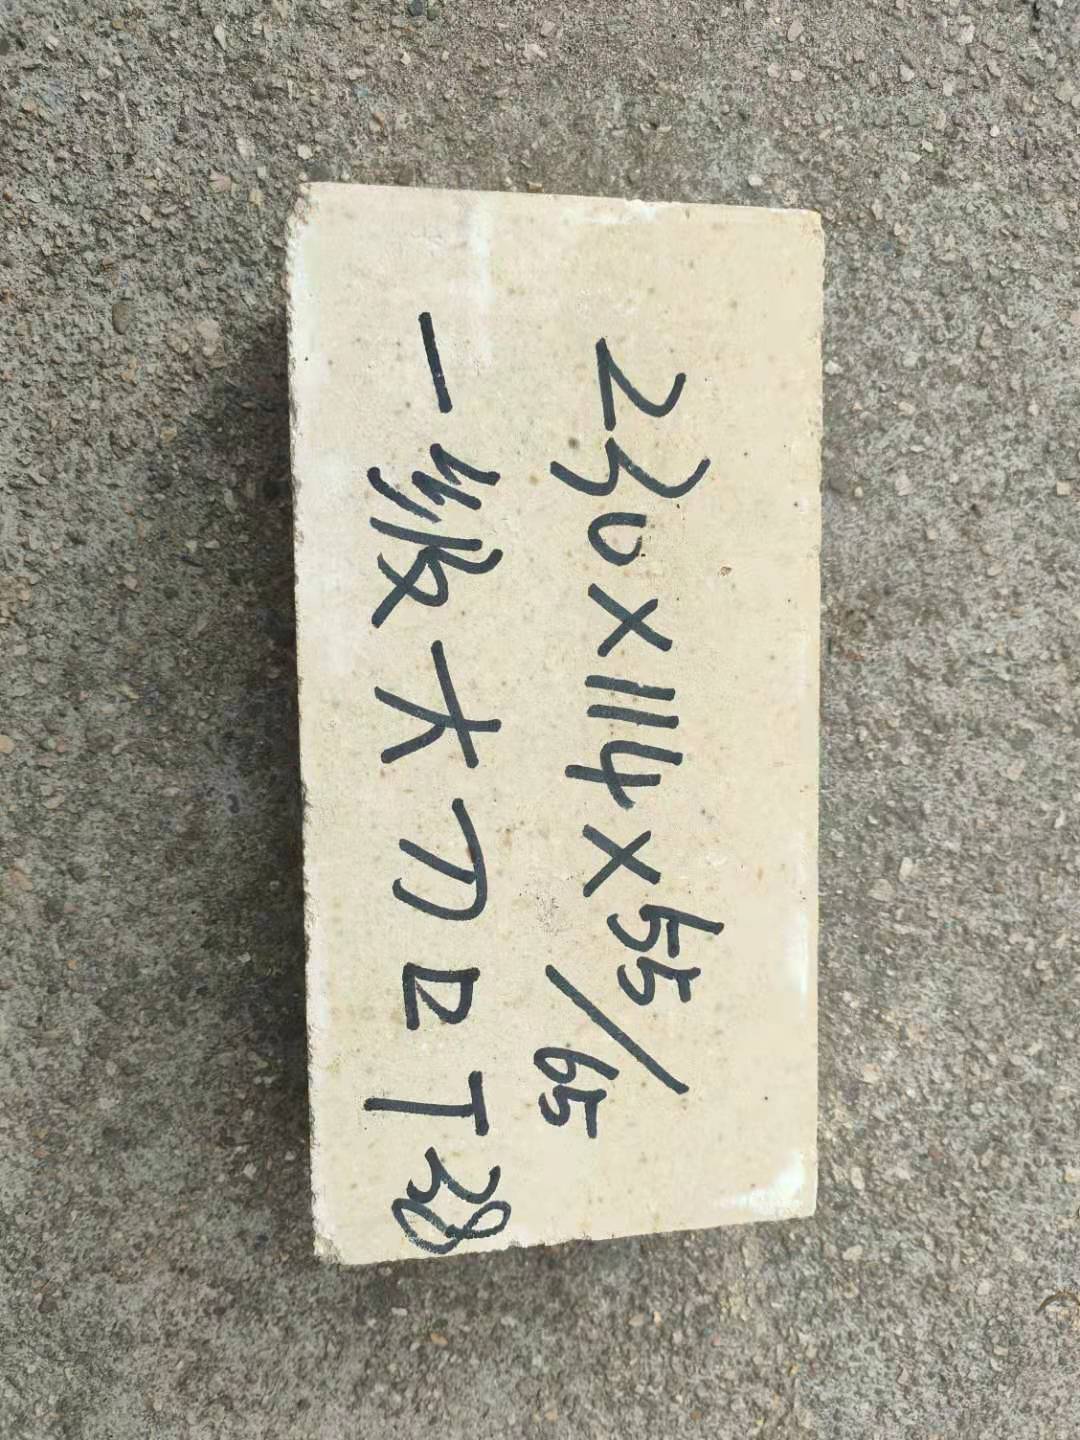 230×114×55/65
一级大刀口T38